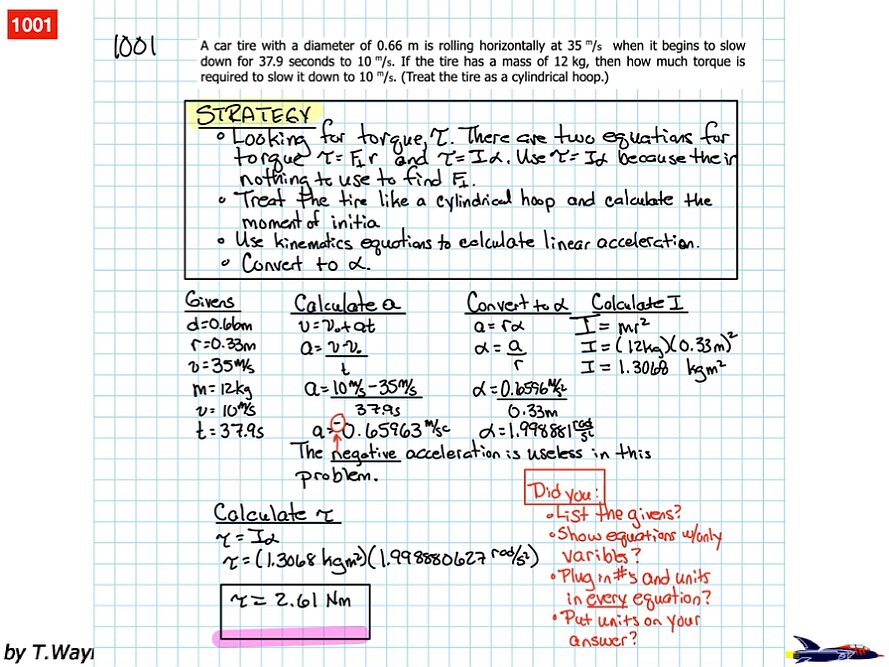 1001
1001
A car tire with a diameter of 0.66 m is rolling horizontally at 35 m/s when it begins to slow
down for 37.9 seconds to 10 m/s. If the tire has a mass of 12 kg, then how much torque is
required to slow it down to 10 m/s. (Treat the tire as a cylindrical hoop.)
STRATEGY
• Looking for torque, τ. There are two equations for
torque τ = F⊥r and τ = Iα. Use τ = Iα because their
nothing to use to find F⊥.
• Treat the tire like a cylindrical hoop and calculate the
moment of initia
• Use kinematics equations to calculate linear acceleration.
• Convert to α.
Givens
d=0.66m
r=0.33m
v=35m/s
m=12kg
v=10m/s
t=37.9s
Calculate a
v=v₀+at
a=v-v₀
t
a=10m/s-35m/s
37.9s
a=-0.65963 m/sc
Convert to α
a=rα
α=a
r
α=0.6596m/s²
0.33m
α=1.998881 rad/s²
Calculate I
I=mr²
I=(12kg)(0.33m)²
I=1.3068 kgm²
The negative acceleration is useless in this
problem.
Calculate τ
τ=Iα
τ=(1.3068 kgm²)(1.998880627 rad/s²)
τ=2.61 Nm
Did you:
• List the givens?
• Show equations w/only
varibles?
• Plug in #'s and units
in every equation?
• Put units on your
answer?
by T.Way